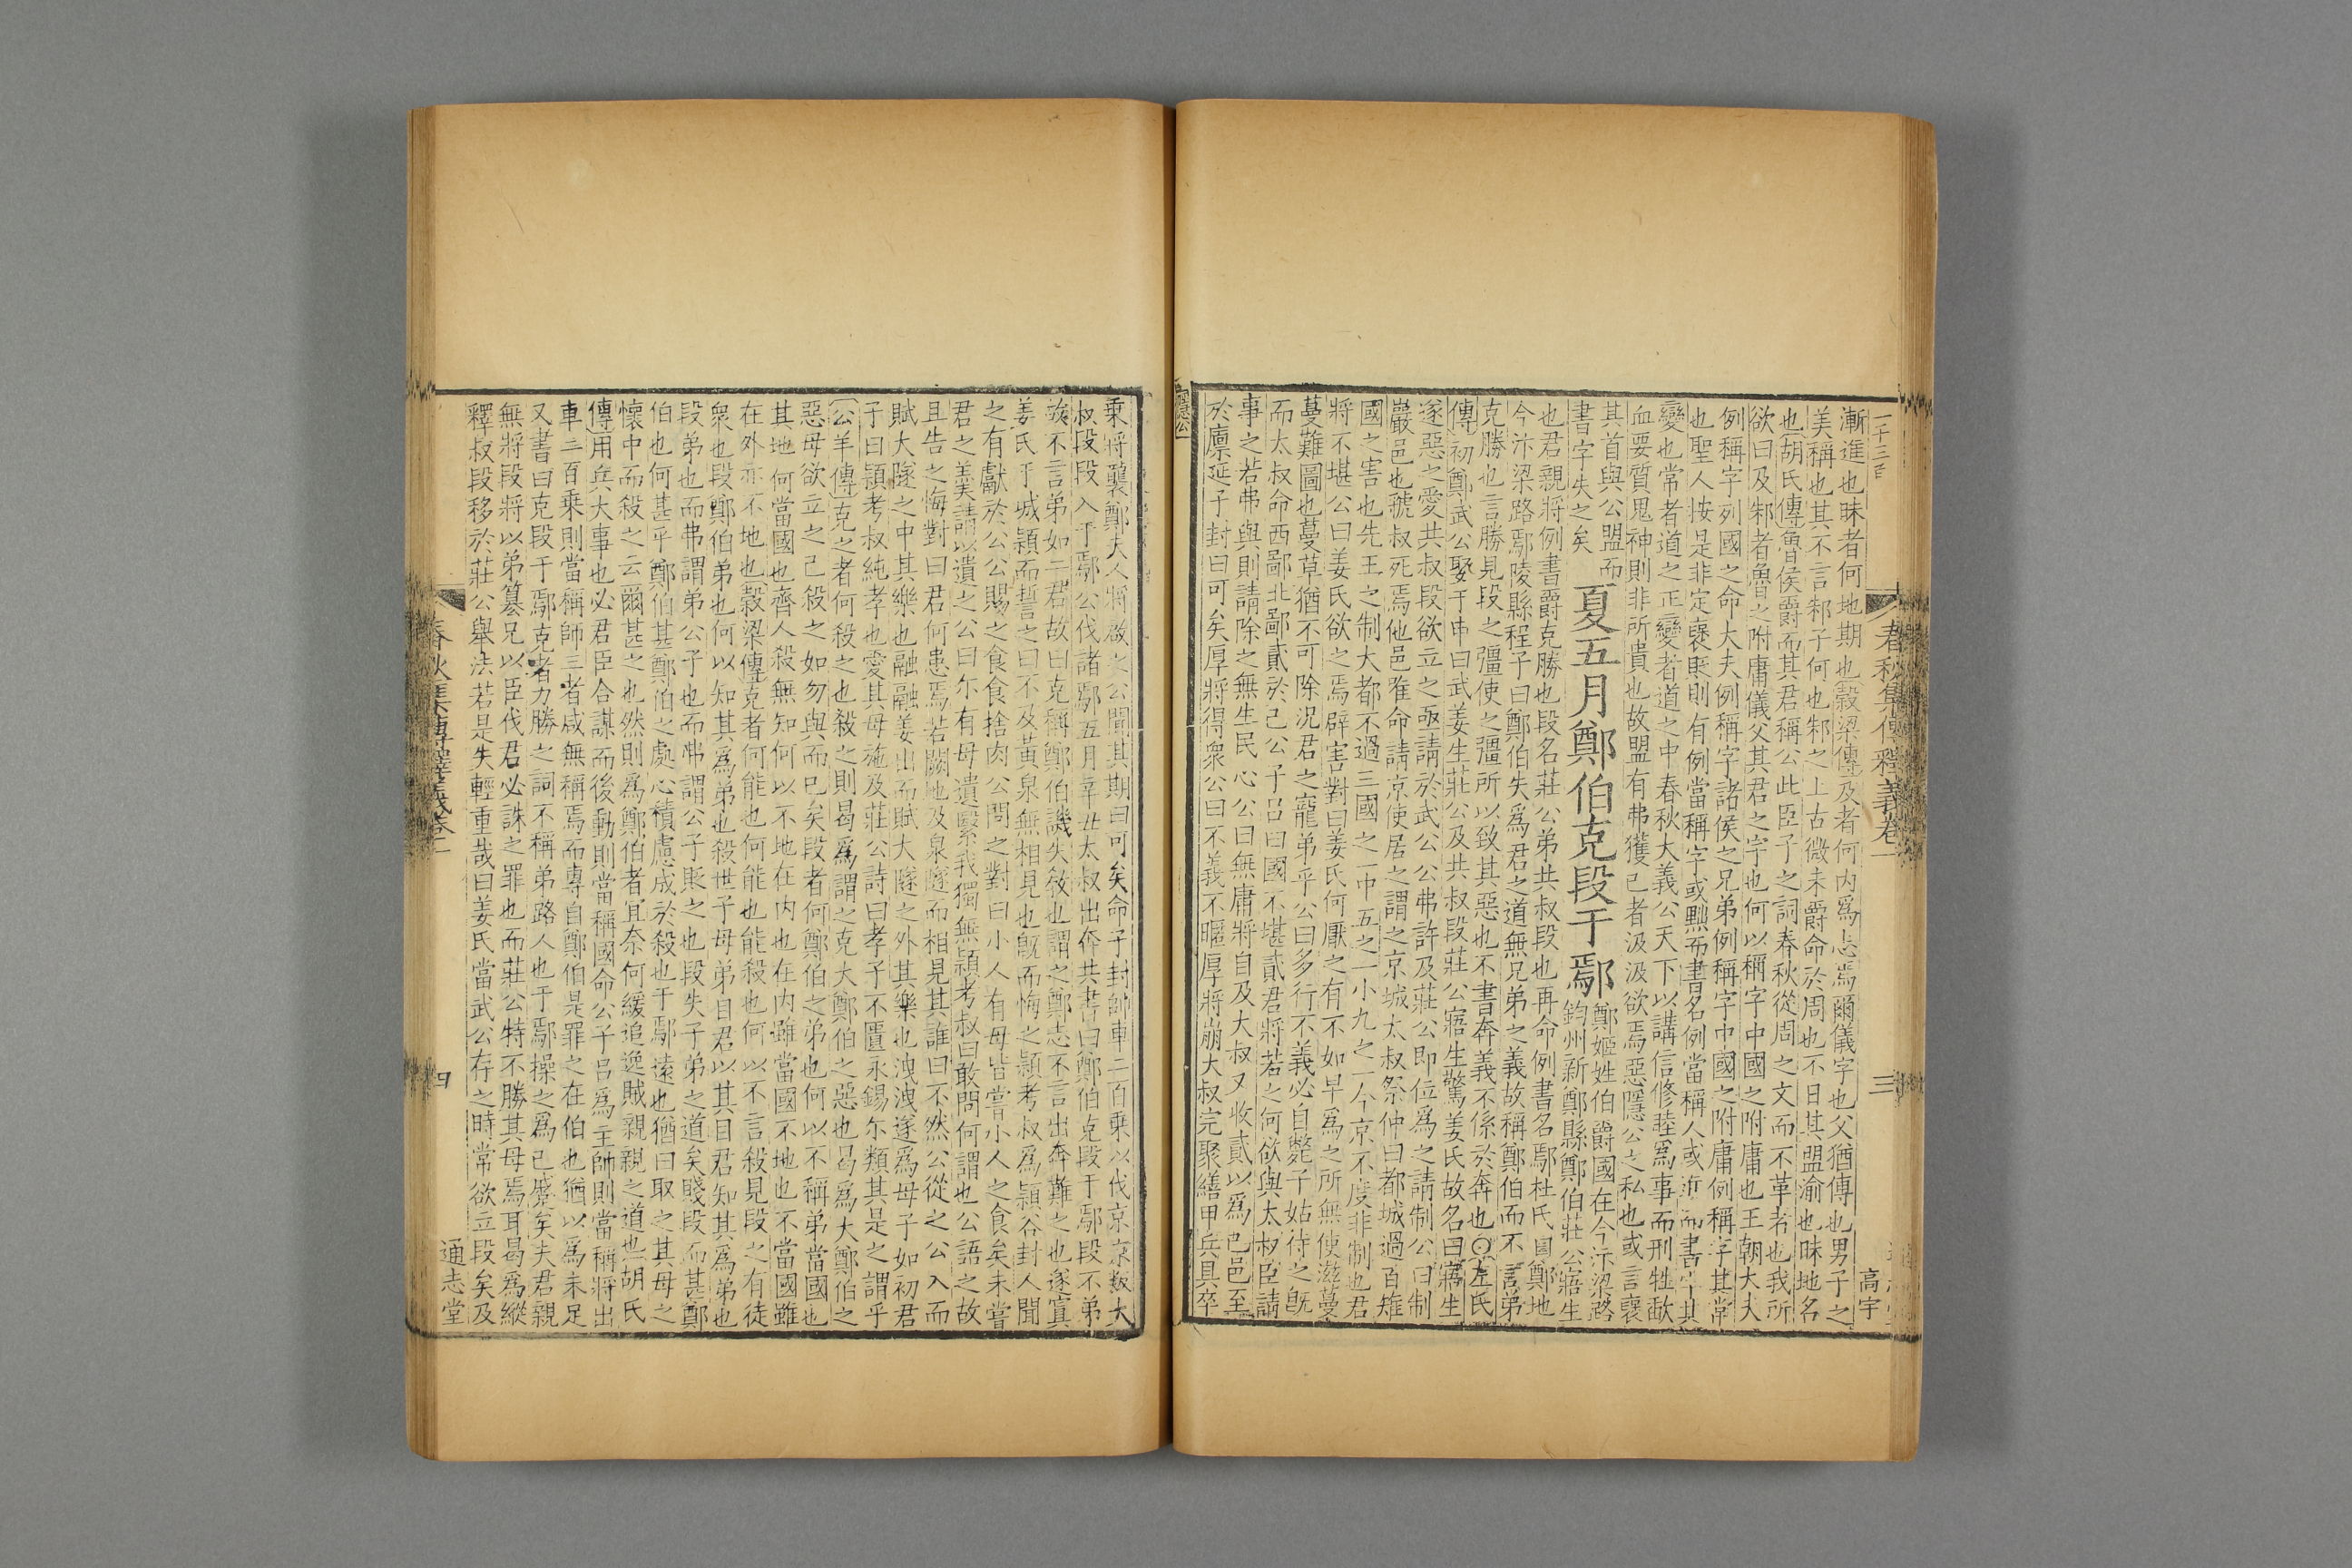 二十三百
春秋集傳釋義卷一
三
高宇
漸進也昧者何地期也穀梁傳及者何内爲志焉爾儀字也父猶傳也男子之
美稱也其不言邾子何也邾之上古微未爵命於周也不日其盟渝也昧地名
也胡氏傳魯侯爵而其君稱公此臣子之詞春秋從周之文而不革者也我所
欲曰及邾者魯之附庸儀父其君之字也何以稱字中國之附庸也王朝大夫
例稱字列國之命大夫例稱字諸侯之兄弟例稱字中國之附庸例稱字其常
也聖人按是非定褒貶則有例當稱字或黜而書名例當稱人或進而書字其
變也常者道之正變者道之中春秋大義公天下以講信修睦爲事而刑牲歃
血要質鬼神則非所貴也故盟有弗獲已者汲汲欲焉惡隱公之私也或言褒
其首與公盟而
書字失之矣
夏五月鄭伯克段于鄢
鄭姬姓伯爵國在今汴梁路
鈞州新鄭縣鄭伯莊公寤生
也君親將例書爵克勝也段名莊公弟共叔段也再命例書名鄢杜氏曰鄭地
今汴梁路鄢陵縣程子曰鄭伯失爲君之道無兄弟之義故稱鄭伯而不言弟
克勝也言勝見段之彊使之彊所以致其惡也不書奔義不係於奔也〇左氏
傳初鄭武公娶于申曰武姜生莊公及共叔段莊公寤生驚姜氏故名曰寤生
遂惡之愛共叔段欲立之亟請於武公公弗許及莊公即位爲之請制公曰制
巖邑也虢叔死焉他邑唯命請京使居之謂之京城太叔祭仲曰都城過百雉
國之害也先王之制大都不過三國之一中五之一小九之一今京不度非制也君
將不堪公曰姜氏欲之焉辟害對曰姜氏何厭之有不如早爲之所無使滋蔓
蔓難圖也蔓草猶不可除況君之寵弟乎公曰多行不義必自斃子姑待之旣
而太叔命西鄙北鄙貳於己公子呂曰國不堪貳君將若之何欲與太叔臣請
事之若弗與則請除之無生民心公曰無庸將自及大叔又收貳以爲己邑至
於廪延子封曰可矣厚將得衆公曰不義不暱厚將崩大叔完聚繕甲兵具卒
隱公
乗將襲鄭夫人將啟之公聞其期曰可矣命子封帥車二百乗以伐京京叛大
叔段段入于鄢公伐諸鄢五月辛丑太叔出奔共書曰鄭伯克段于鄢段不弟
故不言弟如二君故曰克稱鄭伯譏失敎也謂之鄭志不言出奔難之也遂寘
姜氏于城潁而誓之曰不及黃泉無相見也旣而悔之潁考叔爲潁谷封人聞
之有獻於公公賜之食食捨肉公問之對曰小人有母皆嘗小人之食矣未嘗
君之羮請以遺之公曰尓有母遺繄我獨無潁考叔曰敢問何謂也公語之故
且告之悔對曰君何患焉若闕地及泉隧而相見其誰曰不然公從之公入而
賦大隧之中其樂也融融姜出而賦大隧之外其樂也洩洩遂爲母子如初君
子曰潁考叔純孝也愛其母施及莊公詩曰孝子不匱永錫尓類其是之謂乎
公羊傳克之者何殺之也殺之則曷爲謂之克大鄭伯之惡也曷爲大鄭伯之
惡母欲立之己殺之如勿與而已矣段者何鄭伯之弟也何以不稱弟當國也
其地何當國也齊人殺無知何以不地在内也在内雖當國不地也不當國雖
在外亦不地也穀梁傳克者何能也何能也能殺也何以不言殺見段之有徒
衆也段鄭伯弟也何以知其爲弟也殺世子母弟目君以其目君知其爲弟也
段弟也而弗謂弟公子也而弗謂公子貶之也段失子弟之道矣賤段而甚鄭
伯也何甚乎鄭伯甚鄭伯之處心積慮成於殺也于鄢遠也猶曰取之其母之
懷中而殺之云爾甚之也然則爲鄭伯者宜奈何緩追逸賊親親之道也胡氏
傳用兵大事也必君臣合謀而後動則當稱國命公子呂爲主帥則當稱將出
車二百乗則當稱師三者咸無稱焉而專自鄭伯是罪之在伯也猶以爲未足
又書曰克段于鄢克者力勝之詞不稱弟路人也于鄢操之爲已蹙矣夫君親
無將段將以弟簒兄以臣伐君必誅之罪也而莊公特不勝其母焉耳曷爲縱
釋叔段移於莊公舉法若是失輕重哉曰姜氏當武公存之時常欲立段矣及
春秋集傳釋義卷一
四
通志堂